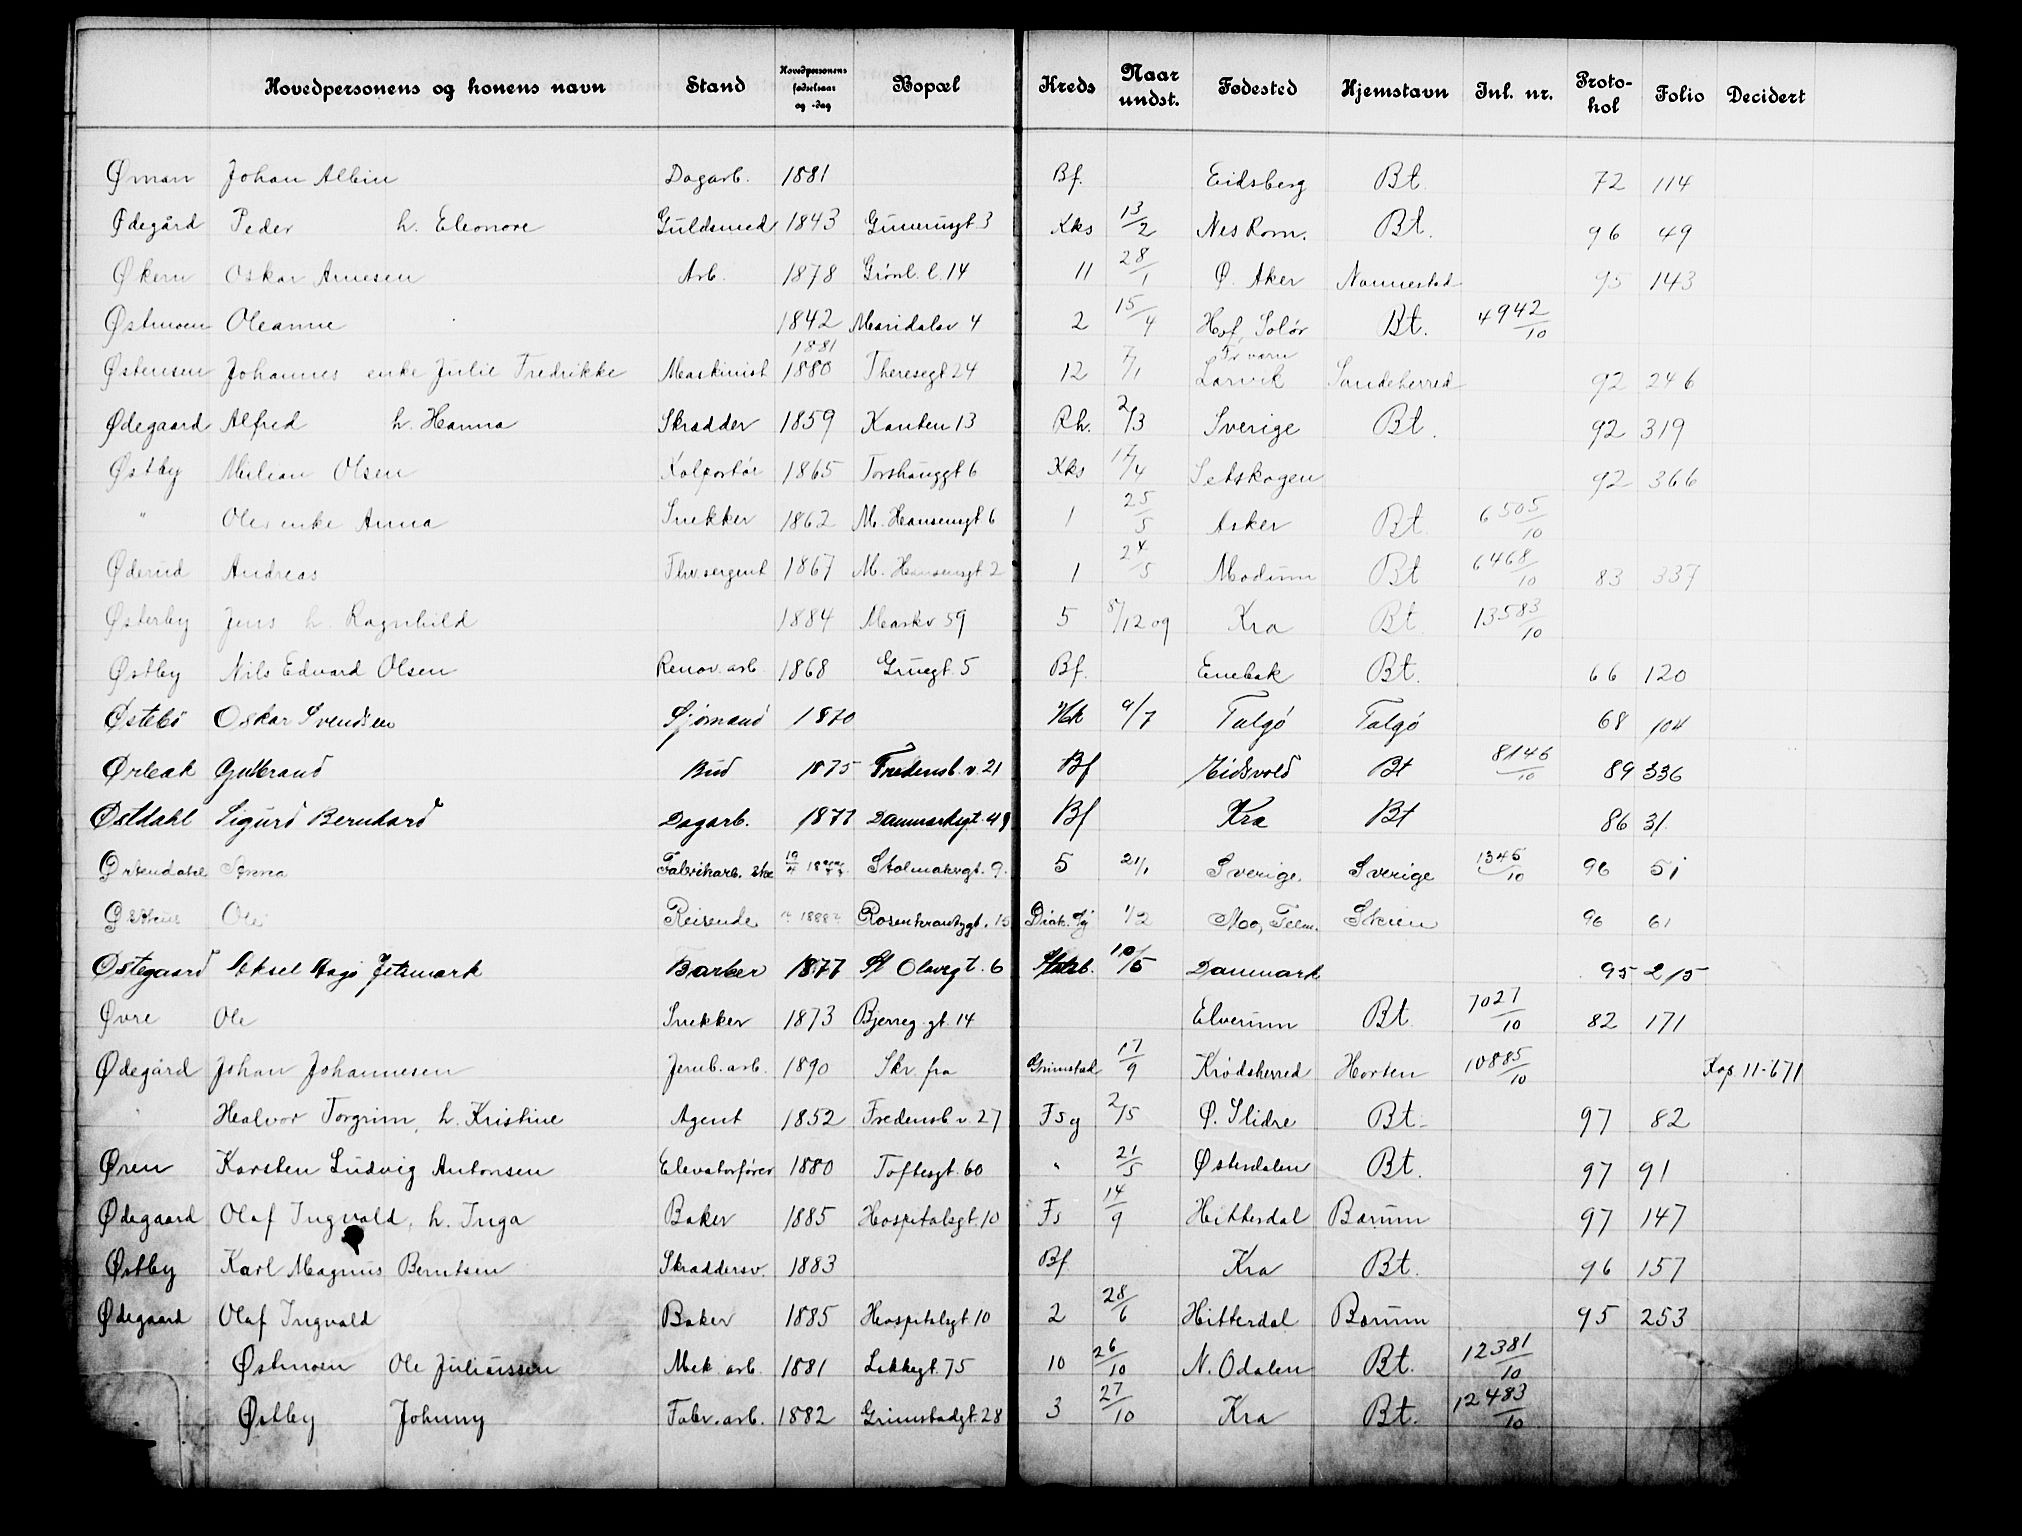 Hovedpersonens og konens navn Stand Hovedpersonens fødselsaar og -dag Bopæl Kreds Naar undst. Fødested Hjemstavn Inl. nr. Proto-kol Folio Decidert
Øman Johan Albin Dagarb. 1881 Bf. Eidsberg Bt. 72 114
Ødegård Peder h. Eleonore Guldsmed 1843 Gunerusgt 3 Kks 13/2 Nes Rom. Bt. 96 49
Økern Oskar Arnesen Arb. 1878 Grønl. l. 14 11 28/1 Ø. Aker Nannestad 95 143
Østmoen Oleanne 1842 Maridalsv 4 2 15/4 Hof, Solør Bt. 4942/10
Østensen Johannes enke Julie Fredrikke Maskinist 1881 1880 Theresegt 24 12 7/1 Fr.værn Larvik Sandeherred 92 246
Ødegaard Alfred h. Hanna Skrædder 1859 Kanten 13 Rh. 2/3 Sverige Bt. 92 319
Østby Milian Olsen Kolportør 1865 Torshauggt 6 Kks 17/4 Setskogen 92 366
" Ole enke Anna Snekker 1862 M. Hansensgt 6 1 25/5 Asker Bt 6505/10
Øderud Andreas Thv.sergent 1867 M. Hansensgt 2 1 24/5 Modum Bt 6468/10 83 337
Østerby Jens h. Ragnhild 1884 Maskv 59 5 8/12 09 Kra Bt 13583/10
Østby Nils Edvard Olsen Renov. arb. 1868 Gruegt. 5 Bf. Enebak Bt. 66 120
Østebö Oskar Svendsen Sjømand 1870 9/7 Talgö Talgö 68 104
Ørbæk Gulbrand Bud 1875 Fredensb. v. 21 Bf Eidsvold Bt 8146/10 89 336
Østdahl Sigurd Bernhard Dagarb. 1877 Danmarksgt. 49 Bf Kra Bt 86 31
Ørtendahl Anna Fabrikarb. 19/4 1877 Stolmakergt. 9. 5 21/1 Sverige Sverige 1345/10 96 51
Ole Reisende 1888 Rosenkrantzgt. 15 Diak. hj 1/2 Mo, Telem. Skien 96 61
Østegaard Aksel Aage Jetsmark Barber 1877 St Olavsgt. 6 10/5 Danmark 95 215
Øvre Ole Snekker 1873 Bjerreg. gt. 14 Elverum Bt. 7027/10 82 171
Ødegård Johan Johannesen Jernb. arb. 1890 Skr. fra Grimstad 17/9 Krødsherred Horten 10885/10 Kop 11-671
" Halvor Torgrim, h. Kristine Agent 1852 Fredensb v. 27 Fsg 2/5 Ø. Slidre Bt. 97 82
Øren Karsten Ludvig Antonsen Elevatorfører 1880 Toftesgt. 60 " 21/5 Østerdalen Bt. 97 91
Ødegaard Olaf Ingvald, h. Inga Baker 1885 Hospitalsgt. 10 Fs 14/9 Hitterdal Bærum 97 147
Østby Karl Magnus Berntsen Skræddersv. 1883 Bf. Kra Bt. 96 157
Ødegaard Olaf Ingvald Baker 1885 Hospitalsgt 10 2 28/6 Hitterdal Bærum 95 253
Østmoen Ole Juliussen Mek. arb. 1881 Lakkegt. 75 10 26/10 N. Odalen Bt. 12381/10
Østby Johnny Fabr. arb. 1882 Grimstadgt. 28 3 27/10 Kra Bt. 12483/10